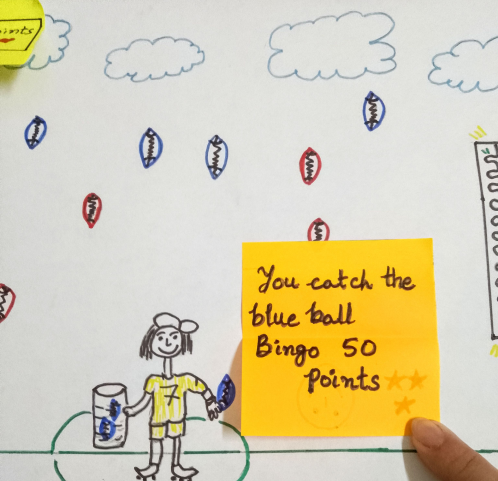 Points
7
You catch the
blue ball
Bingo 50
Points